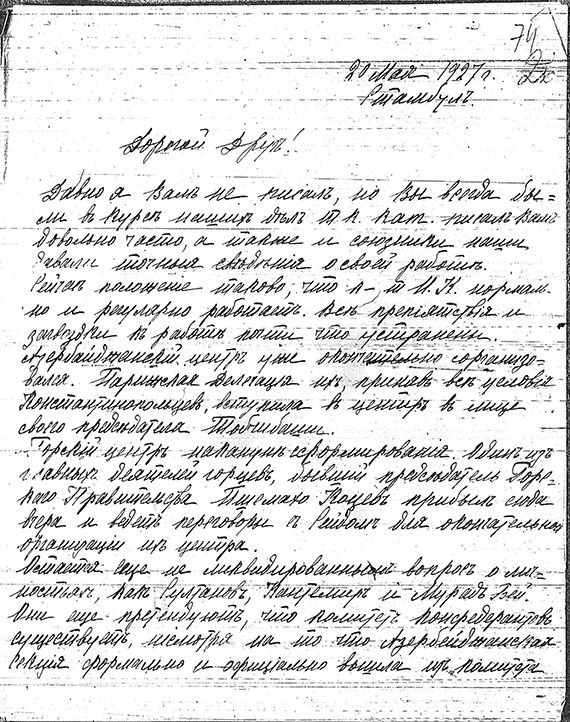 74
20 Мая 1927 г.
Стамбулъ
Дорогой Другъ!
Давно я Вамъ не писалъ, но Вы всегда бы=
ли в курсѣ нашихъ дѣлъ т.к. Кап. писалъ Вамъ
довольно часто, а также и союзники наши
давали точныя свѣдѣнія о своей работѣ.
Сейчас положение таково, что к-т Н.К. нормаль-
но и регулярно работаетъ. Всѣ препятствія и
загвоздки к работѣ почти что устранены.
Азербайджанскій центръ уже окончательно сорганизо-
вался. Парижская Делегація их, принявъ всѣ условія
Константинопольцев, вступила в центръ в лице
своего предсѣдателя Топчибаши.
Горскій центръ наканунѣ сформирования. Одинъ изъ
главных деятелей горцевъ, бывшій предсѣдатель Горс-
каго Правительства Пшемахо Коцевъ прибылъ сюда
вчера и ведетъ переговоры съ Сеидомъ для окончательной
организации их центра.
Остается еще не ликвидированнымъ вопросъ о лич-
ностях, как Султановъ, Кантемир и Мурадъ-Бей.
Они еще претендуютъ, что комитетъ конфедерантовъ
существуетъ, несмотря на то что Азербейджанская
секція формально и официально вышла изъ комитета